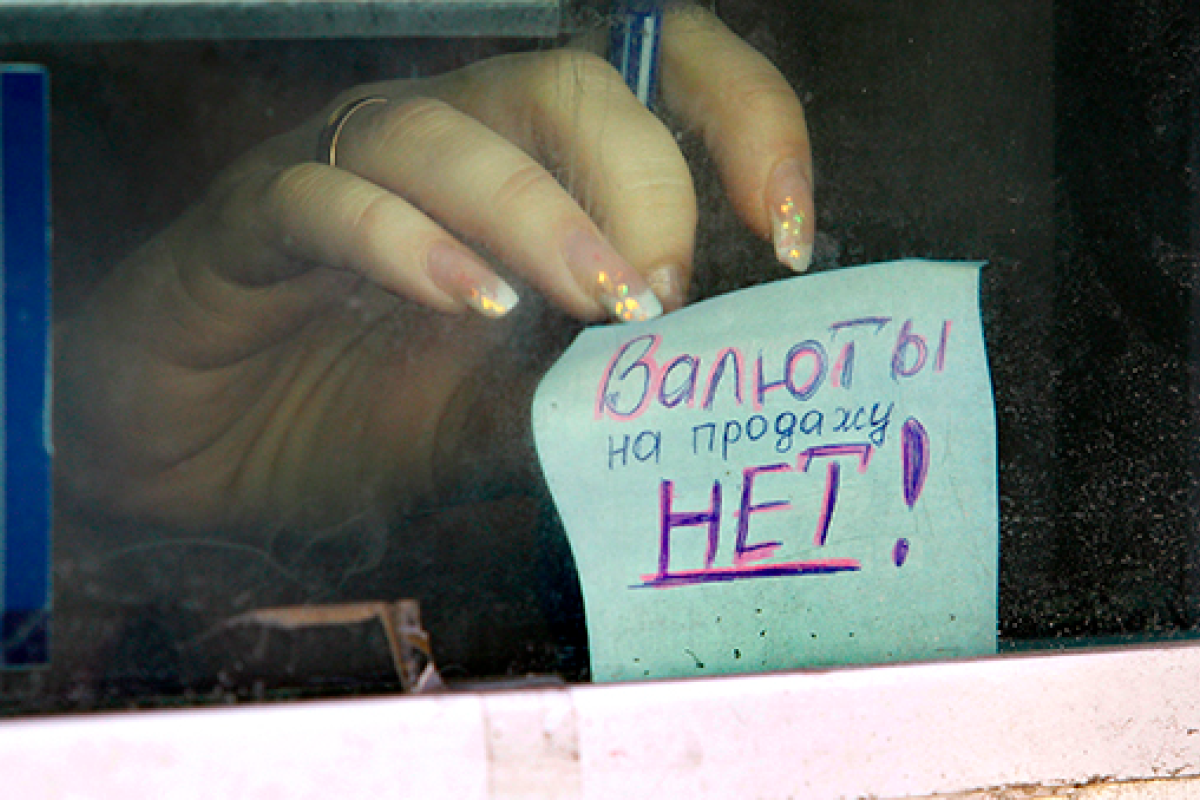 Валюты
на продажу
НЕТ!